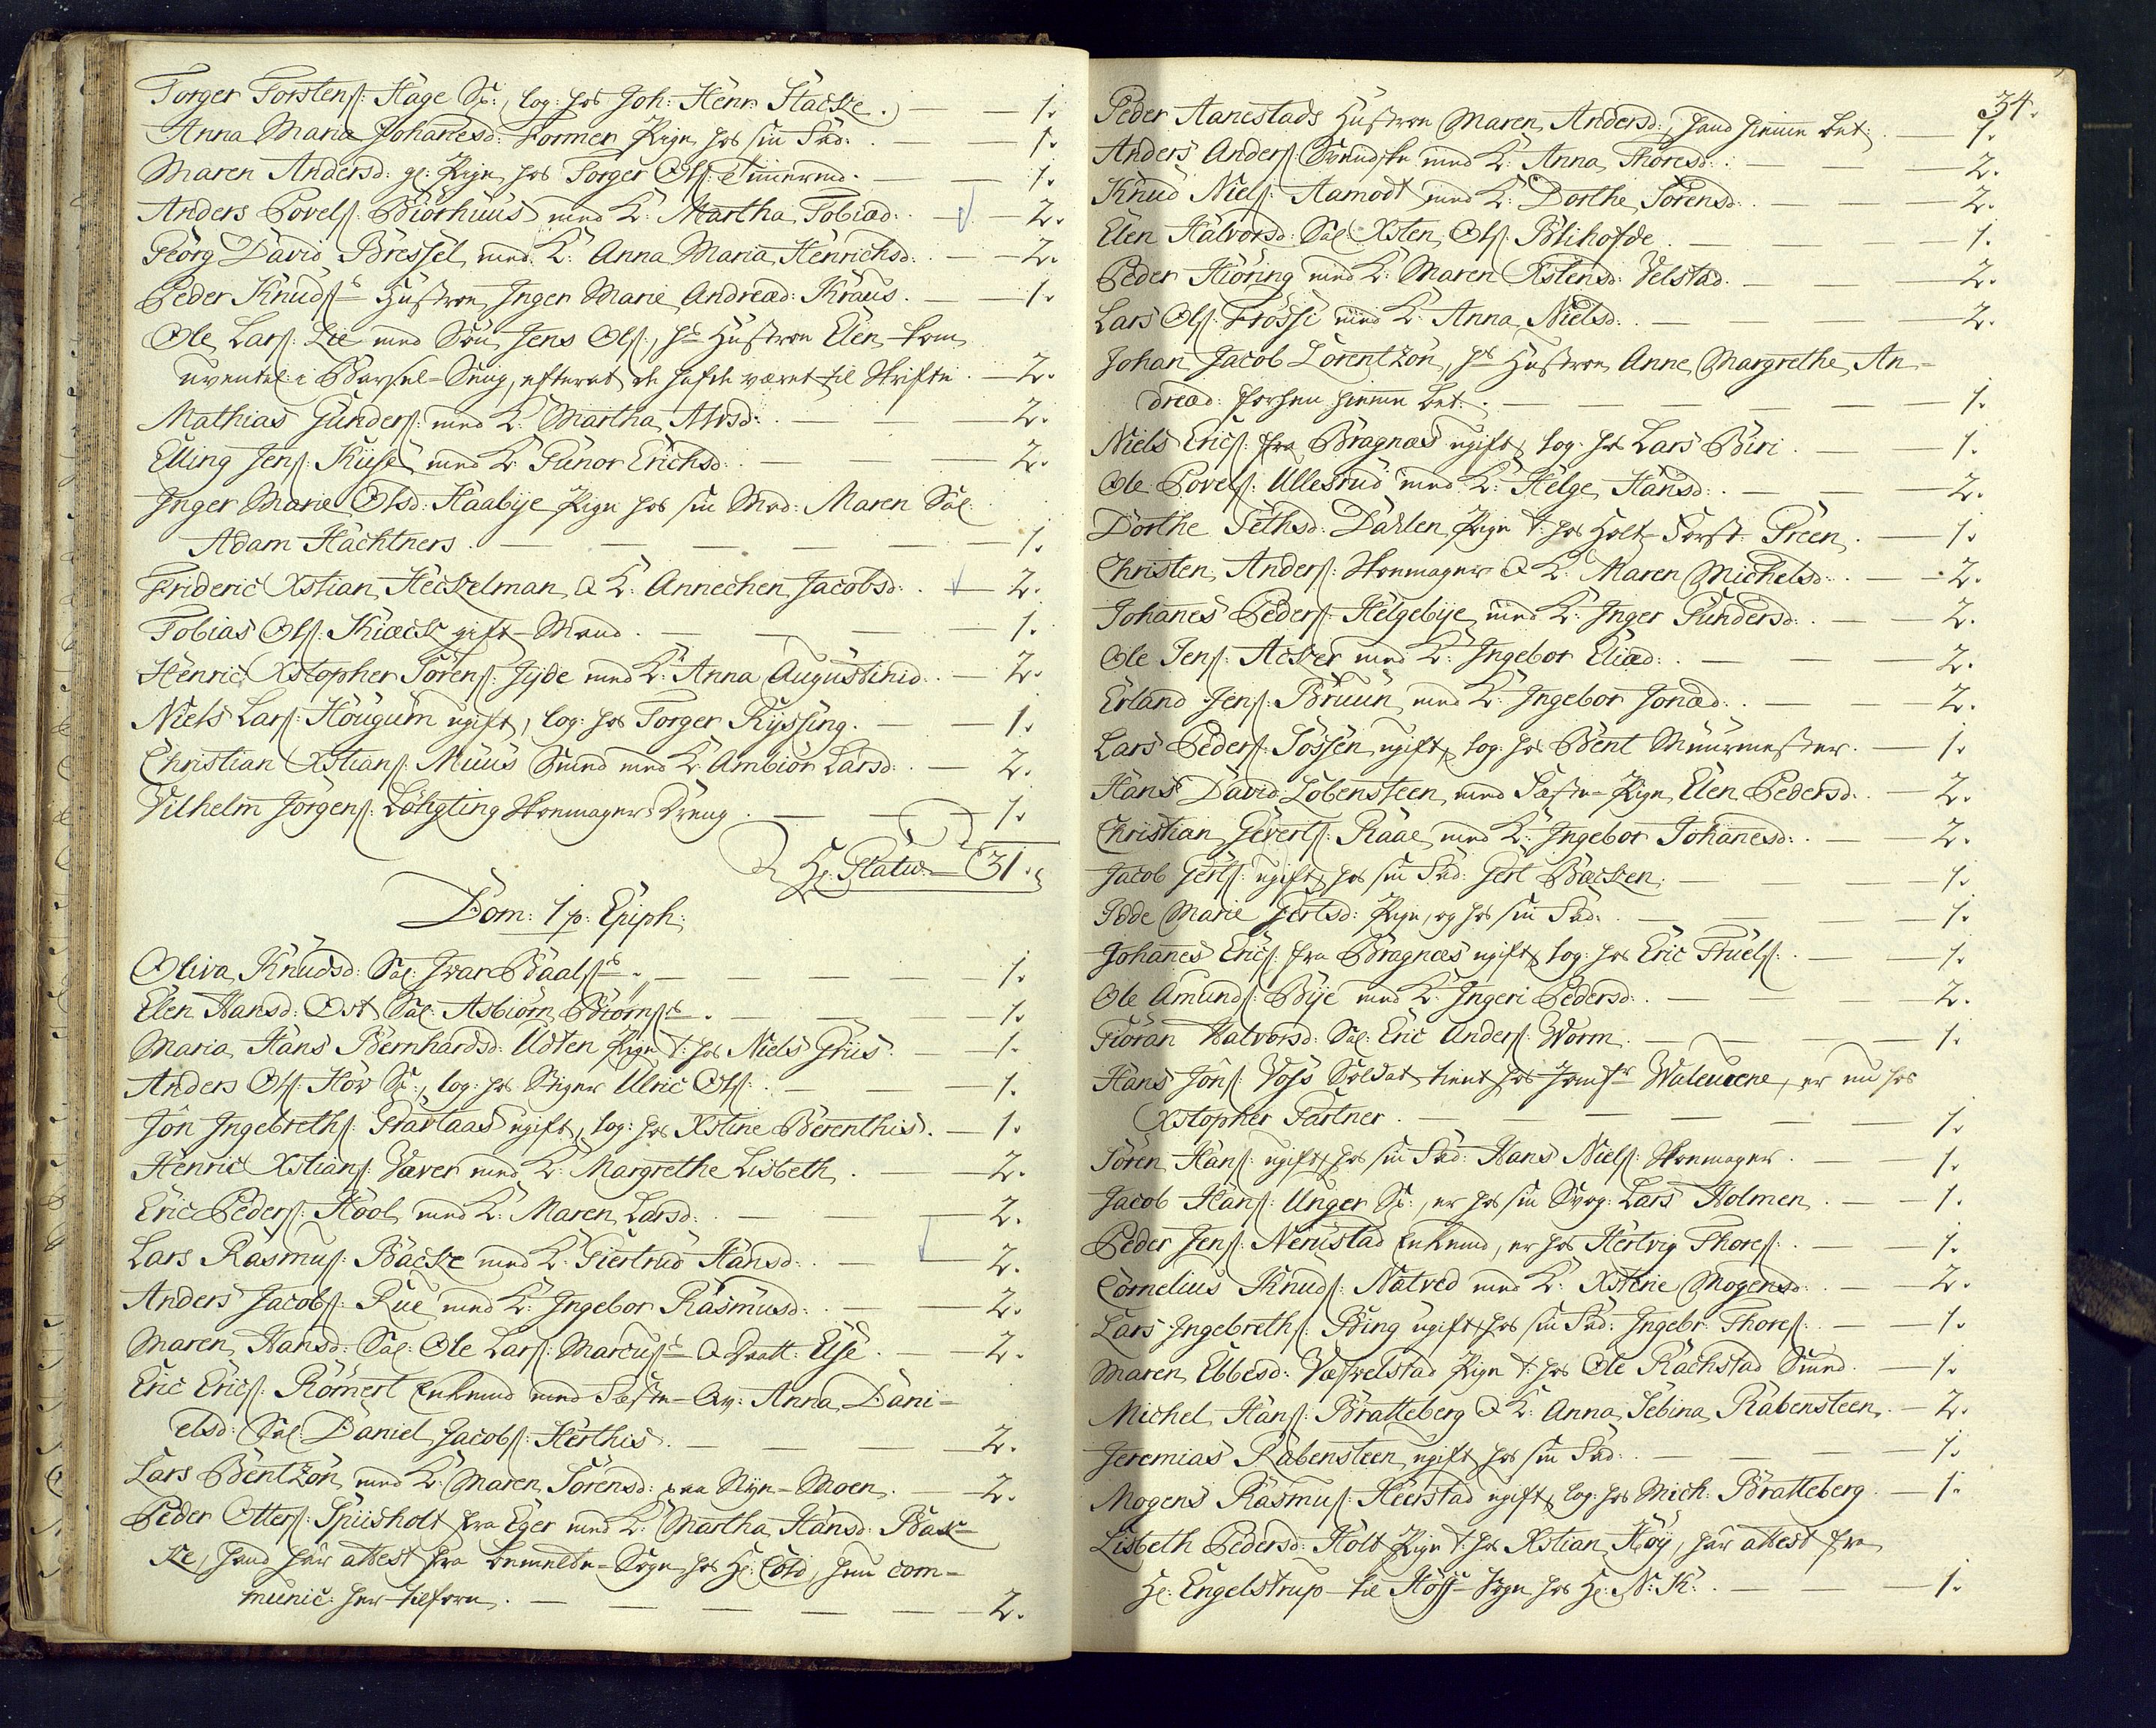 Torger Torstens: Hage Sr:, log: hos Joh: Henr. Stacke. — 1.
Anna Maria Johanesd: Former Pige, hos sin Fad: — 1.
Maren Andersd: gl: Pige, hos Torger Ols: Timmermd. — 1.
Anders Povels: Biörhuus med K: Martha Tobiæd: — 2.
Georg David Bressel, med K: Anna Maria Henrichsd: — 2.
Peder Knuds: Hustroe Inger Marie Andreæd: Kraus. — 1.
Ole Lars: Lie med Søn Jens Ols:, hs Hustroe Elen kom
uventet i Barsel-Seng, efterat de hafde været til Skrifte. — 2.
Mathias Gunders: med K: Martha Alvsd: — 2.
Elling Jens: Kiise med K: Gunor Erichsd: — 2.
Inger Marie Olsd: Haabije Pige hos sin Mod: Maren Sal:
Adam Hachtners. — 1.
Frideric Xstian Heckelman & K: Annechen Jacobsd: — 2.
Tobias Ols: Kiæck gift-Mand. — 1.
Henric Xstopher Sörens: Jyde med K: Anna Augustinid: — 2.
Niels Lars: Hougum ugift, log: hos Torger Ryssing. — 1.
Christian Xstians: Muus Smed med K: Ambiör Larsd: — 2.
Vilhelm Jörgens: Löhgting Skoemager-Dreng. — 1.
Hr: Statw — 31.
Dom: 1 p: Epiph:
Oliva Knudsd: Sal: Ivar Baals: — 1.
Elen Hansd: Ost Sal: Asbiörn Biörns: — 1.
Maria Hans Bernhardsd: Udten Pige t: hos Niels Griis. — 1.
Anders Ols: Hov Sr:, log: hos Stiger Ulric Ols: — 1.
Jön Ingebreths: Travlaas ugift, log: hos Xstine Berenthis. — 1.
Henric Xstians: Væver med K: Margrethe Lisbeth. — 2.
Eric Peders: Hool med K: Maren Larsd: — 2.
Lars Rasmus: Backe med K: Giertrud Hansd: — 2.
Anders Jacobs: Rue med K: Ingebor Rasmusd: — 2.
Maren Hansd: Sal: Ole Lars: Marcus: & Datt: Else. — 2.
Eric Erics: Römert Enkemd med Fæste-Qv: Anna Dani-
elsd: Sal: Daniel Jacobs: Herthis. — 2.
Lars Bentzön med K: Maren Sörensd: paa Myn-Moen. — 2.
Peder Otters: Spiisholt fra Eger med K: Martha Hansd: Bac-
ke, hand har attest fra bemeldte-Sogn hos Hr: Cold, hun com-
munic: her tilforn. — 2.
34.
Peder Aanestads Hustroe Maren Andersd:, hand hiemme bet: — 1.
Anders Anders: Svendske med K: Anna Thoresd: — 2.
Knud Niels: Aamodt med K: Dorthe Sörensd: — 2.
Elen Halvorsd: Sal: Xsten Ols: Blihofde. — 1.
Peder Hiöring med K: Maren Xstensd: Velstad. — 2.
Lars Ols: Frössi med K: Anna Nielsd: — 2.
Johan Jacob Lorentzön, hs Hustroe Anne Margrethe An-
dreæd: forhen hiemme bet: — 1.
Niels Erics: fra Bragnæs ugift, log: hos Lars Biri. — 1.
Ole Povels: Ullesrud med K: Helge Hansd: — 2.
Dorthe Sethsd: Dahlen Pige t: hos Holt-Forst. Preen. — 1.
Christen Anders: Skoemager & K: Maren Michelsd: — 2.
Johanes Peders: Helgebye med K: Inger Gundersd: — 2.
Ole Jens: Acker med K: Ingebor Eliæd: — 2.
Erland Jens: Bruun med K: Ingebor Jonæd: — 2.
Lars Peders: Tossen ugift, log: hos Bent Muurmester. — 1.
Hans David Lobensteen, med Fæste-Pige Elen Pedersd: — 2.
Christian Geverts: Raae med K: Ingebor Johanesd: — 2.
Jacob Gerts: ugift, hos sin Fad: Gert Backen. — 1.
Ide Marie Gertsd: Pige, og hos sin Fad: — 1.
Johanes Erics: fra Bragnæs ugift, log: hos Eric Truels: — 1.
Ole Amunds: Bije med K: Ingeri Pedersd: — 2.
Giöran Halvorsd: Sal: Eric Anders: Worm. — 1.
Hans Jöns: Voss Soldat tient hos Jomfr Waleurene, er nu hos
Xstopher Gartner. — 1.
Sören Hans: ugift, hos sin Fad: Hans Niels: Skoemager. — 1.
Jacob Hans: Unger Sr:, er hos sin Svog: Lars Holmen. — 1.
Peder Jens: Nerustad Enkemd, er hos Hertvig Thores: — 1.
Cornelius Knuds: Natved med K: Xstine Mogensd: — 2.
Lars Ingebreths: Bing ugift, hos sin Fad: Ingebr: Thores: — 1.
Maren Ebbesd: Væstvelstad Pige t: hos Ole Rachstad Smed. — 1.
Michel Hans: Bratteberg & K: Anna Sebina Rabensteen. — 2.
Jeremias Rabensteen, ugift hos sin Fad: — 1.
Mogens Rasmus: Heerstad ugift, log: hos Mich: Bratteberg. — 1.
Lisbeth Pedersd: Holt Pige t: hos Xstian Höy, har attest fra
Hr: Engelstrup til Höff-Sogn hos Hr: N: K: — 1.